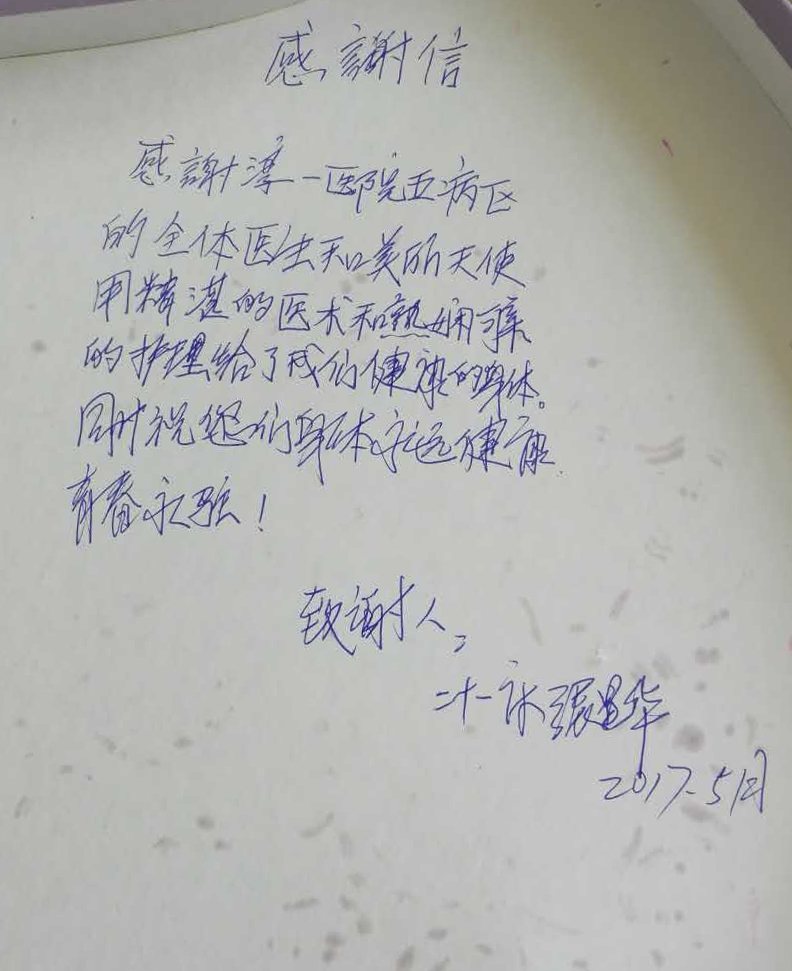 感謝信
感謝漳一医院五病区
的全体医生和美丽天使
用精湛的医术和熟娴
的护理给了我们健康的身体。
同时祝您们身体永远健康
青春永驻！
致謝人，
二十一床張昌华
2017.5月